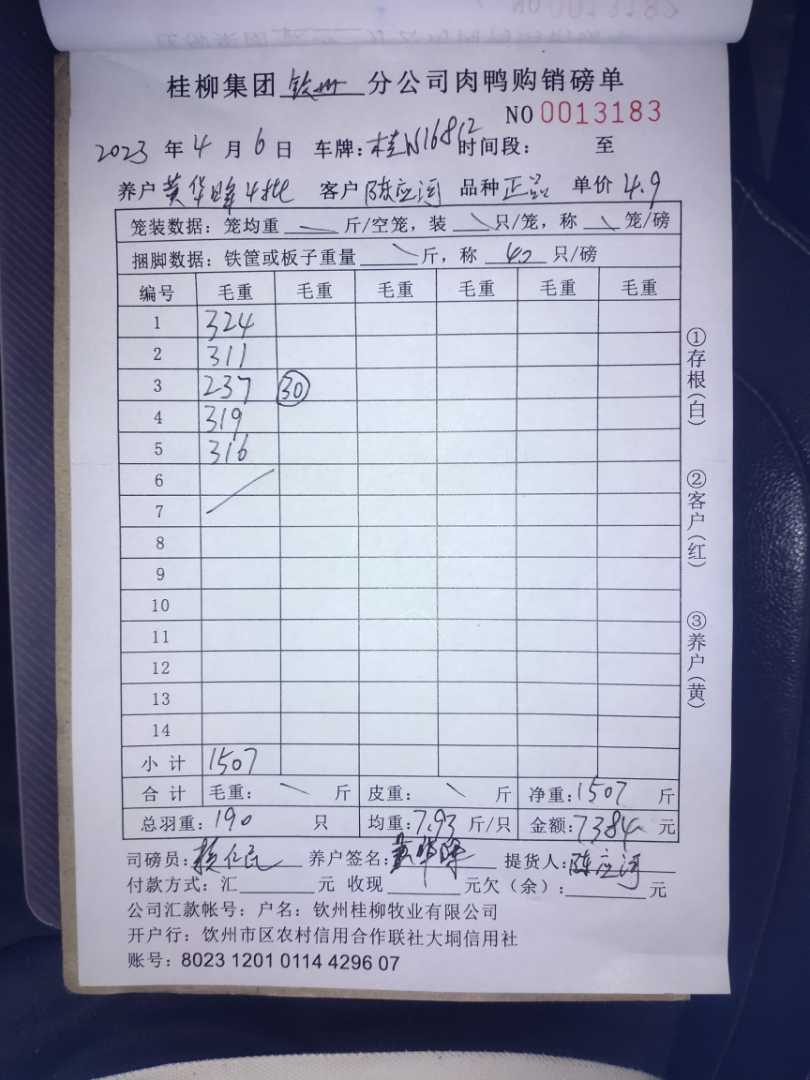 桂柳集团 钦州 分公司肉鸭购销磅单
NO 0013183
2023 年 4 月 6 日 车牌: 桂N16812 时间段: 至
养户 黄华晖4批 客户 陈应河 品种 正品 单价 4.9
笼装数据: 笼均重 \ 斤/空笼, 装 \ 只/笼, 称 \ 笼/磅
捆脚数据: 铁筐或板子重量 \ 斤, 称 40 只/磅
编号 毛重 毛重 毛重 毛重 毛重 毛重
1 324
2 311
3 237 30
4 319
5 316
6
7
8
9
10
11
12
13
14
小计 1507
合计 毛重: \ 斤 皮重: \ 斤 净重: 1507 斤
总羽重: 190 只 均重: 7.93 斤/只 金额: 7384 元
司磅员: 仁民 养户签名: 黄华晖 提货人: 陈应河
付款方式: 汇 元 收现 元欠(余): 元
公司汇款帐号: 户名: 钦州桂柳牧业有限公司
开户行: 钦州市区农村信用合作联社大垌信用社
账号: 8023 1201 0114 4296 07
①存根(白)
②客户(红)
③养户(黄)